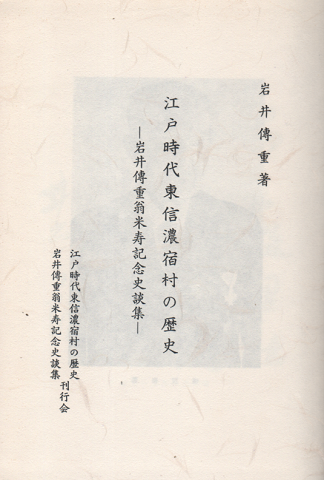 岩井傳重著
江戸時代東信濃宿村の歴史
―岩井傳重翁米寿記念史談集―
江戸時代東信濃宿村の歴史
岩井傳重翁米寿記念史談集
刊行会